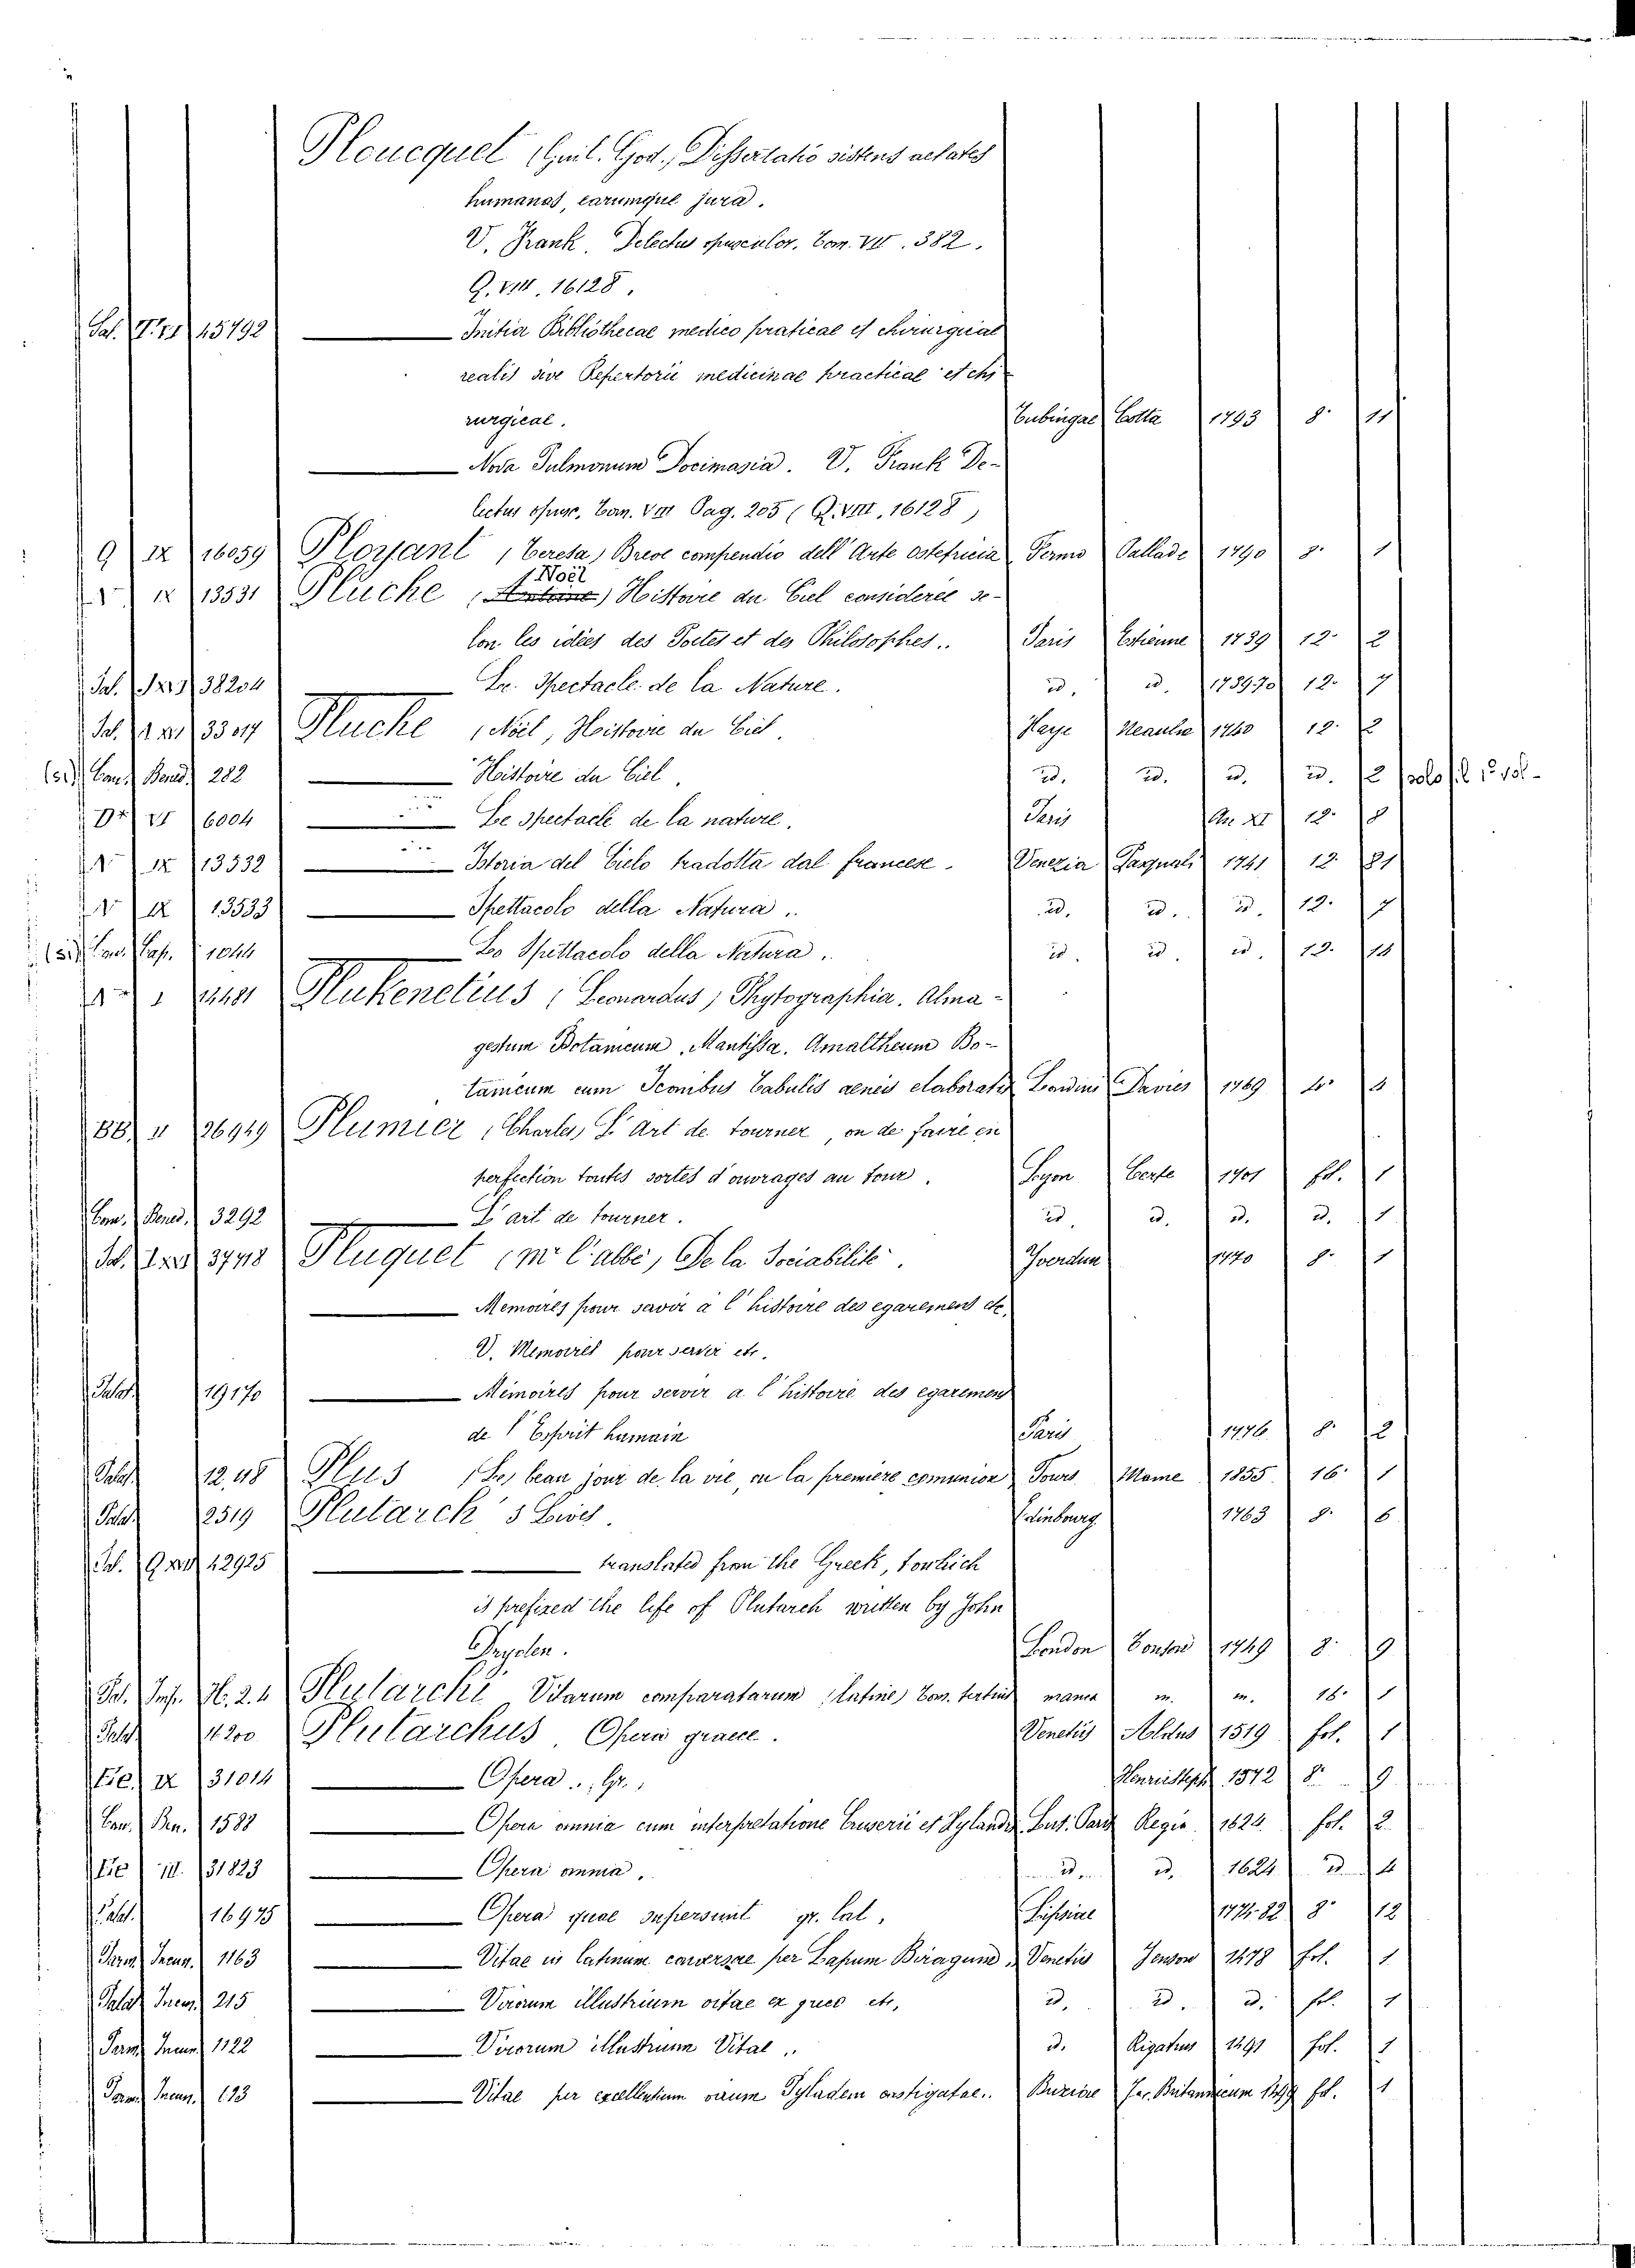 Ploucquet (Guil. God., Dissertatio sistens aetates
humanas, earumque jura.
V. Frank. Delectus opusculor. Tom. VII. 382.
Q. VIII. 16128.
Sal. 45792 — Initia Bibliothecae medico praticae et chirurgicae
realis sive Repertorii medicinae practicae et chi
rurgicae. Tubingae Cotta 1793 8° 11
— Nova Pulmonum Docimasia. V. Frank De-
lectus opusc. Tom. VIII Pag. 205 (Q. VIII, 16128)
Q IX 16059 Ployant (Teresa) Breve compendio dell'Arte Ostetricia Fermo Pallade 1790 8° 1
IX 13531 Pluche (Antoine) Noël Histoire du Ciel considerée se-
lon les idées des Poetes et des Philosophes.. Paris Estienne 1739 12° 2
Sal. 38204 — Le Spectacle de la Nature. id. id. 1739.70 12° 7
Sal. 33017 Pluche (Noël, Histoire du Ciel. Haye Neaulne 1740 12° 2
(si) Com. Bened. 282 — Histoire du Ciel. id. id. id. id. 2 solo il 1° vol-
VI 6004 — Le spectacle de la nature. Paris An XI 12° 8
IX 13532 — Istoria del Cielo tradotta dal francese. Venezia Pasquali 1741 12°
IX 13533 — Spettacolo della Natura.. id. id. id. 12° 7
(si) Com. Cap. 1044 — Lo Spettacolo della Natura. id. id. id. 12°
Plukenetius (Leonardus) Phytographia. Alma-
gestum Botanicum. Mantissa. Amaltheum Bo-
tanicum cum Iconibus Tabulis aeneis elaboratis Londini Davies 1769 4° 4
BB 26949 Plumier (Charles) L'Art de tourner, ou de faire en
perfection toutes sortes d'ouvrages au tour. Lyon Certe 1701 fol. 1
Com. Bened. 3292 — L'art de tourner. id. id. id. id. 1
Sal. 37718 Pluquet (mr l'abbé, De la Sociabilité. Yverdun 1770 8° 1
— Memoires pour savir a l'histoire des egaremens etc.
V. Memoires pour servir etc.
Palat. 19170 — Mémoires pour servir a l'histoire des egaremens
de l'Esprit humain Paris 1776. 8° 2
Palat. 12.48 Plus (Le) beau jour de la vie, ou la première comunion Tours Mame 1855 16° 1
Palat. 2519 Plutarch's Lives. Edinbourg 1763 8° 6
Sal. 42925 — translated from the Greek, to which
is prefixed the life of Plutarch written by John
Dryden. London Tonson 1749 8° 9
Sal. Inf. H. 2.4 Plutarchi Vitarum comparatarum (latine) Tom. tertius manca m. m. 16° 1
Palat. 14200 Plutarchus Opera graece. Venetiis Aldus 1519 fol. 1
IX 31014 — Opera.. Gr., Henr. Steph. 1572 8° 9
Com. Ben. 1588 — Opera omnia cum interpretatione Cruserii et Xylandri Lut. Paris Regia 1624. fol. 2
III. 31823 — Opera omnia. id. id. 1624 id. 4
Palat. 16975 — Opera quae supersunt gr. lat. Lipsiae 1774-82 8° 12
Parm. Incun. 1163 — Vitae in latinum conversae per Lapum Biragum Venetiis Jenson 1478 fol. 1
Palat. Incun. 215 — Virorum illustrium vitae ex greco etc, id. id. id. fol. 1
Parm. Incun. 1122 — Virorum illustrium Vitae.. id. Rigatius 1491 fol. 1
Parm. Incun. 193 — Vitae per excellentium virum Pyladem castigatae.. Brixiae Jac. Britannicum 1499 fol. 1